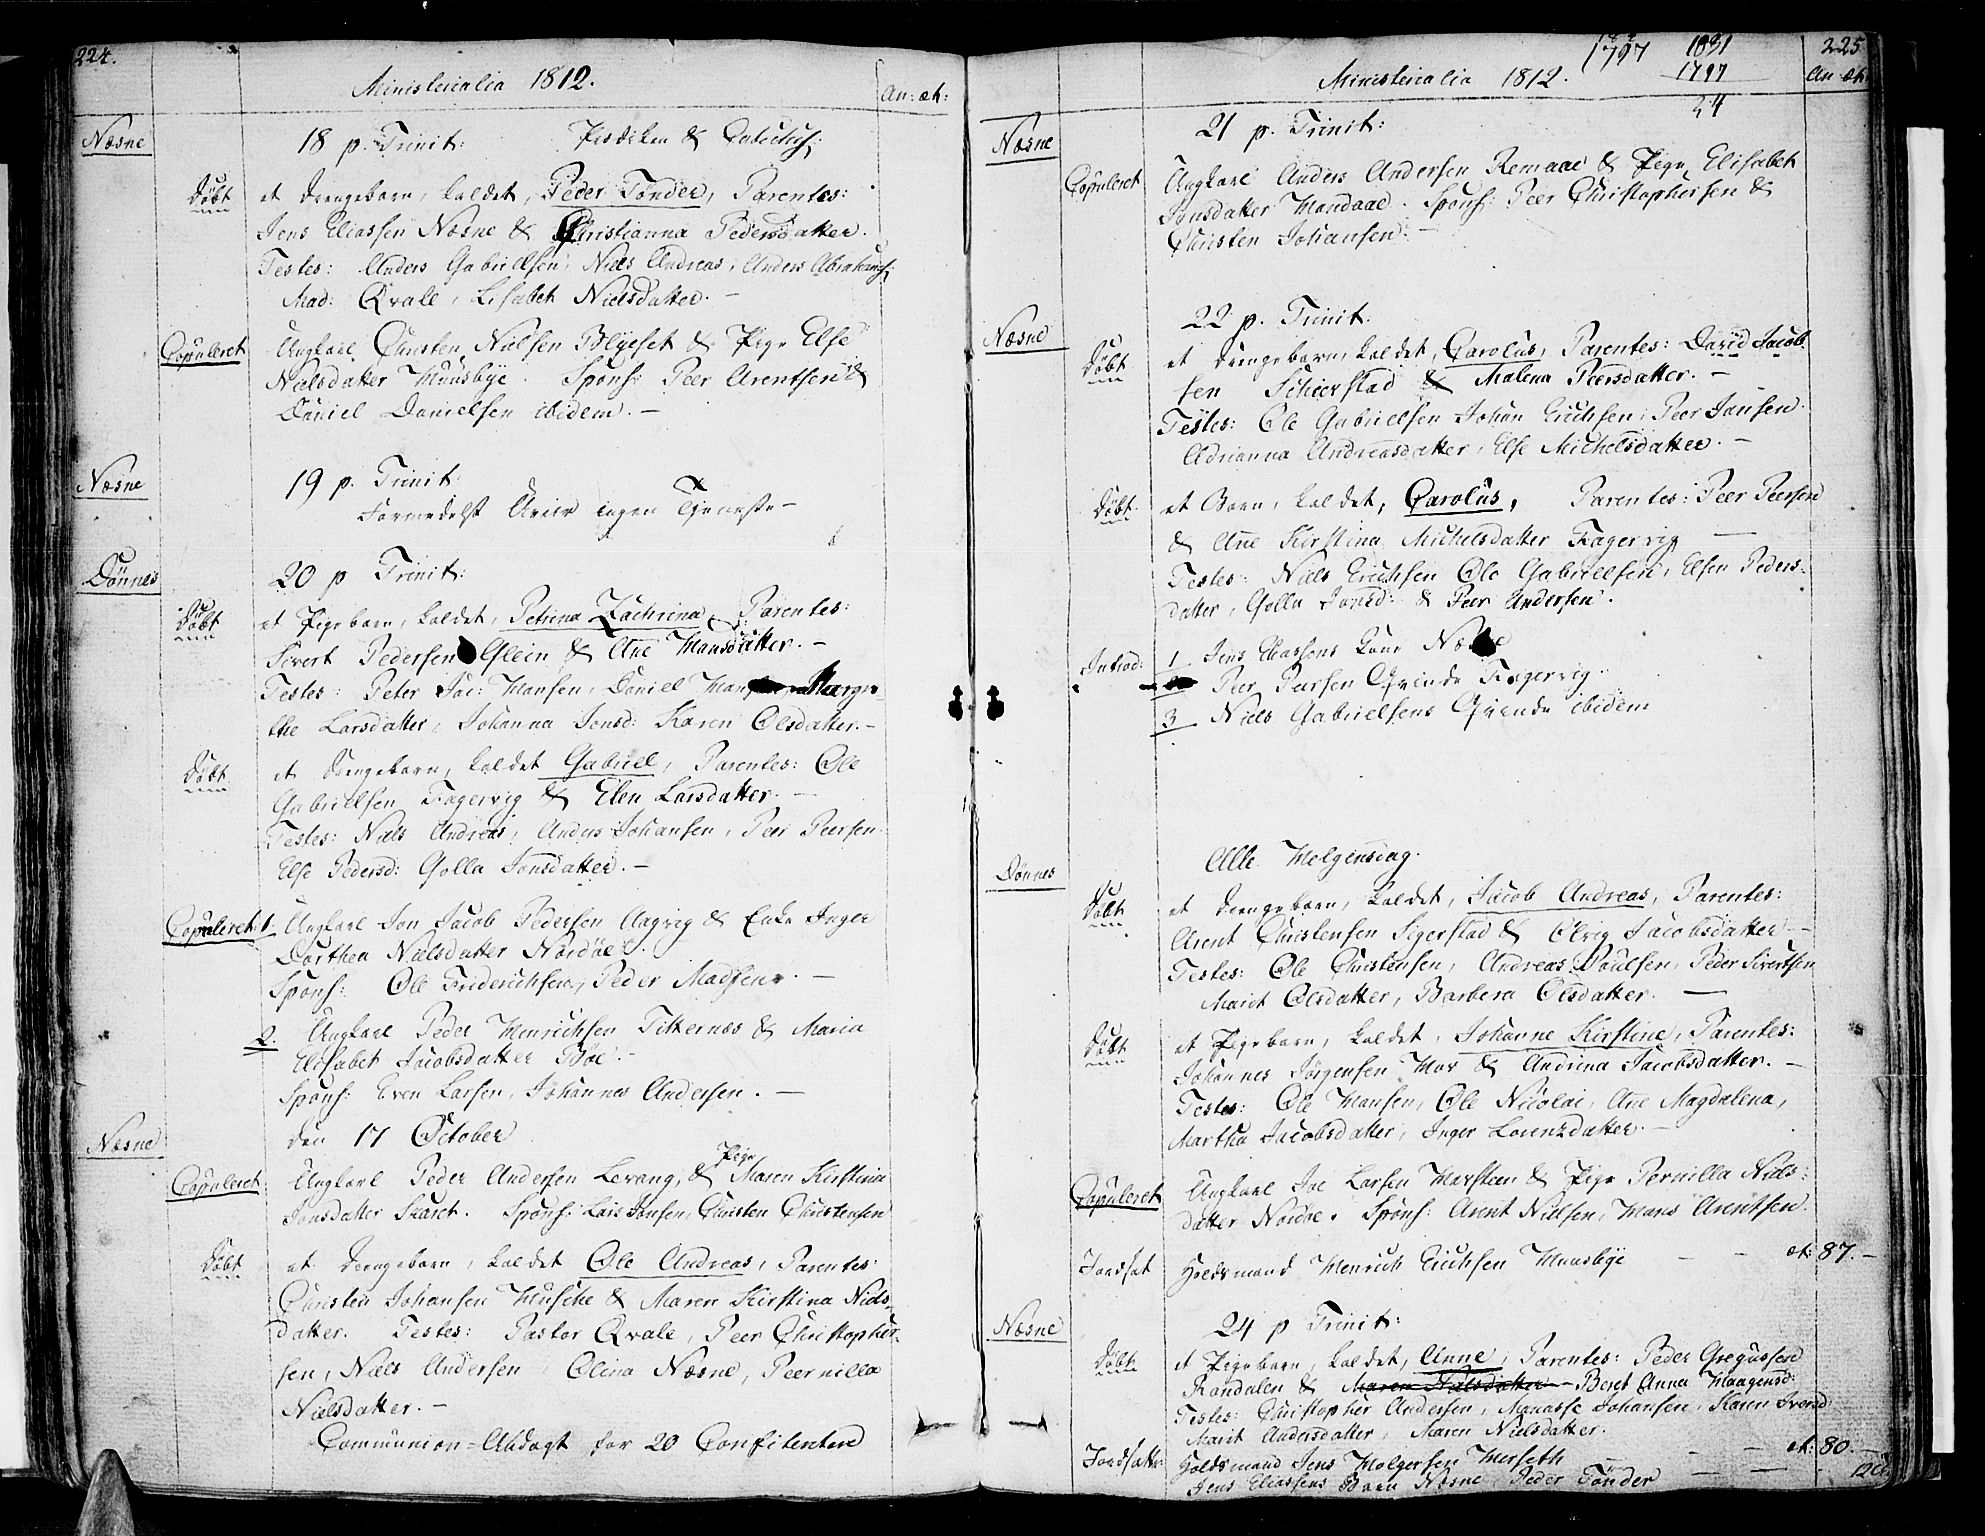 224.
Ministerialia 1812.
An: æt:
Næsne
18 p. Trinit:
Døbt
et Drengebarn, kaldet, Peder Tønder, Parentes:
Jens Eliassen Næsne & Christianna Pedersdatter.
Testes: Anders Gabrielsen, Niels Andreas, Anders Abrahams:
Mad: Qvale, Lisabet Nielsdatter. —
Copuleret
Ungkarl Christen Nielsen & Pige Else
Nielsdatter Huusbye. Spons: Peer Arentsen &
Daniel Danielsen ibidem. —
Næsne
19 p. Trinit:
Formedelst Uveir ingen Tjeneste —
Dønnes
20 p Trinit:
Døbt
et Pigebarn, kaldet, Petrina Zachrina, Parentes:
Sivert Pedersen Glein & Ane Hansdatter. —
Testes: Peter Jac: Hansen, Daniel Margre-
the Larsdatter, Johanna Jonsd: Karen Olsdatter. —
Døbt
et Drengebarn, kaldet Gabriel, Parentes: Ole
Gabrielsen Fagervig & Elen Larsdatter. —
Testes: Niels Andreas, Anders Johansen, Peer Peersen
Else Pedersd: Golla Jonsdatter. —
Copuleret: 1.
Ungkarl Jon Jacob Pedersen Aagvig & Enke Inger
Dorthea Nielsdatter Nordøe.
Spons: Ole Friderichsen, Peder Madsen. —
2.
Ungkarl Peder Henrichsen Titternes & Maria
Elisabet Jacobsdatter Bøe. —
Spons: Even Larsen, Johannes Andersen. —
Næsne
den 17 October
Copuleret
Ungkarl Peder Andersen Levang, & Pige Maren Kirstina
Jonsdatter Skaret. Spons: Lars Jonsen, Christen Christensen
Døbt
et Drengebarn, kaldet Ole Andreas, Parentes:
Christen Johansen Husche & Maren Kirstina Niels-
datter. Testes: Pastor Qvale, Peer Christopher-
sen, Niels Andersen, Olina Næsne, Peernilla
Nielsdatter. —
Communion-Aldagt for 20 Confitenter
225
1797
1831
1797
34
Ministerialia 1812.
An æt:
Næsne
21 p. Trinit:
Copuleret
Ungkarl Anders Andersen Remaae & Pige Elisabet
Jonsdatter Handaae. Spons: Peer Christophersen &
Christen Johansen. —
Næsne
22 p. Trinit.
Døbt
et Drengebarn, kaldet, Carolus, Parentes: David Jacob
sen Scheerstad & Malena Peersdatter. —
Testes: Ole Gabrielsen Johan Erichsen, Peer Jansen
Adrianna Andreasdatter, Else Michelsdatter. —
Døbt
et Barn, kaldet, Carolus, Parentes: Peer Peersen
& Ane Kirstina Michelsdatter Fagervig —
Testes: Niels Erichsen Ole Gabrielsen, Elsen Peders-
datter, Golla Jonsd: & Peer Andersen.
Introd:
1 Jens Eliassens Kone Næsne
Peer Peersen Qvinde Fagervig.
3 Niels Gabrielsens Qvinde ibidem
Dønnes
Alle Helgensdag.
Døbt
et Drengebarn, kaldet, Jacob Andreas, Parentes:
Arent Christensen Sigerstad & Olvig Jacobsdatter —
Testes: Ole Christensen, Andreas Poulsen, Peder Sivertsen
Marit Olsdatter, Barbera Olsdatter. —
Døbt
et Pigebarn, kaldet, Johanne Kirstine, Parentes:
Johannes Jørgensen Hov & Andrina Jacobsdatter. —
Testes: Ole Hansen, Ole Nicolai, Ane Magdalena,
Martha Jacobsdatter, Inger Lorenzdatter. —
Copuleret
Ungkarl Joe Larsen Havsteen & Pige Pernilla Niels-
datter Nordøe. Spons: Arent Nielsen, Hans Arentsen.
Jordfæt
Holdsmand Henrich Erichsen Huusbye — — æt: 87. —
Næsne
24 p Trinit:
Døbt
et Pigebarn, kaldet, Anne, Parentes: Peder Gregussen
Randalen & Maren Nielsdatter — Beret Anna Haagensd:
Testes: Christopher Andersen, Manasse Johansen, Karen Iversd
Marit Andersdatter, Maren Nielsdatter.
Jordfæt:
Holdsmand Jens Holgersen Herseth — — æt: 80. —
Jens Eliassens Barn Næsne, Peder Tønder — — —